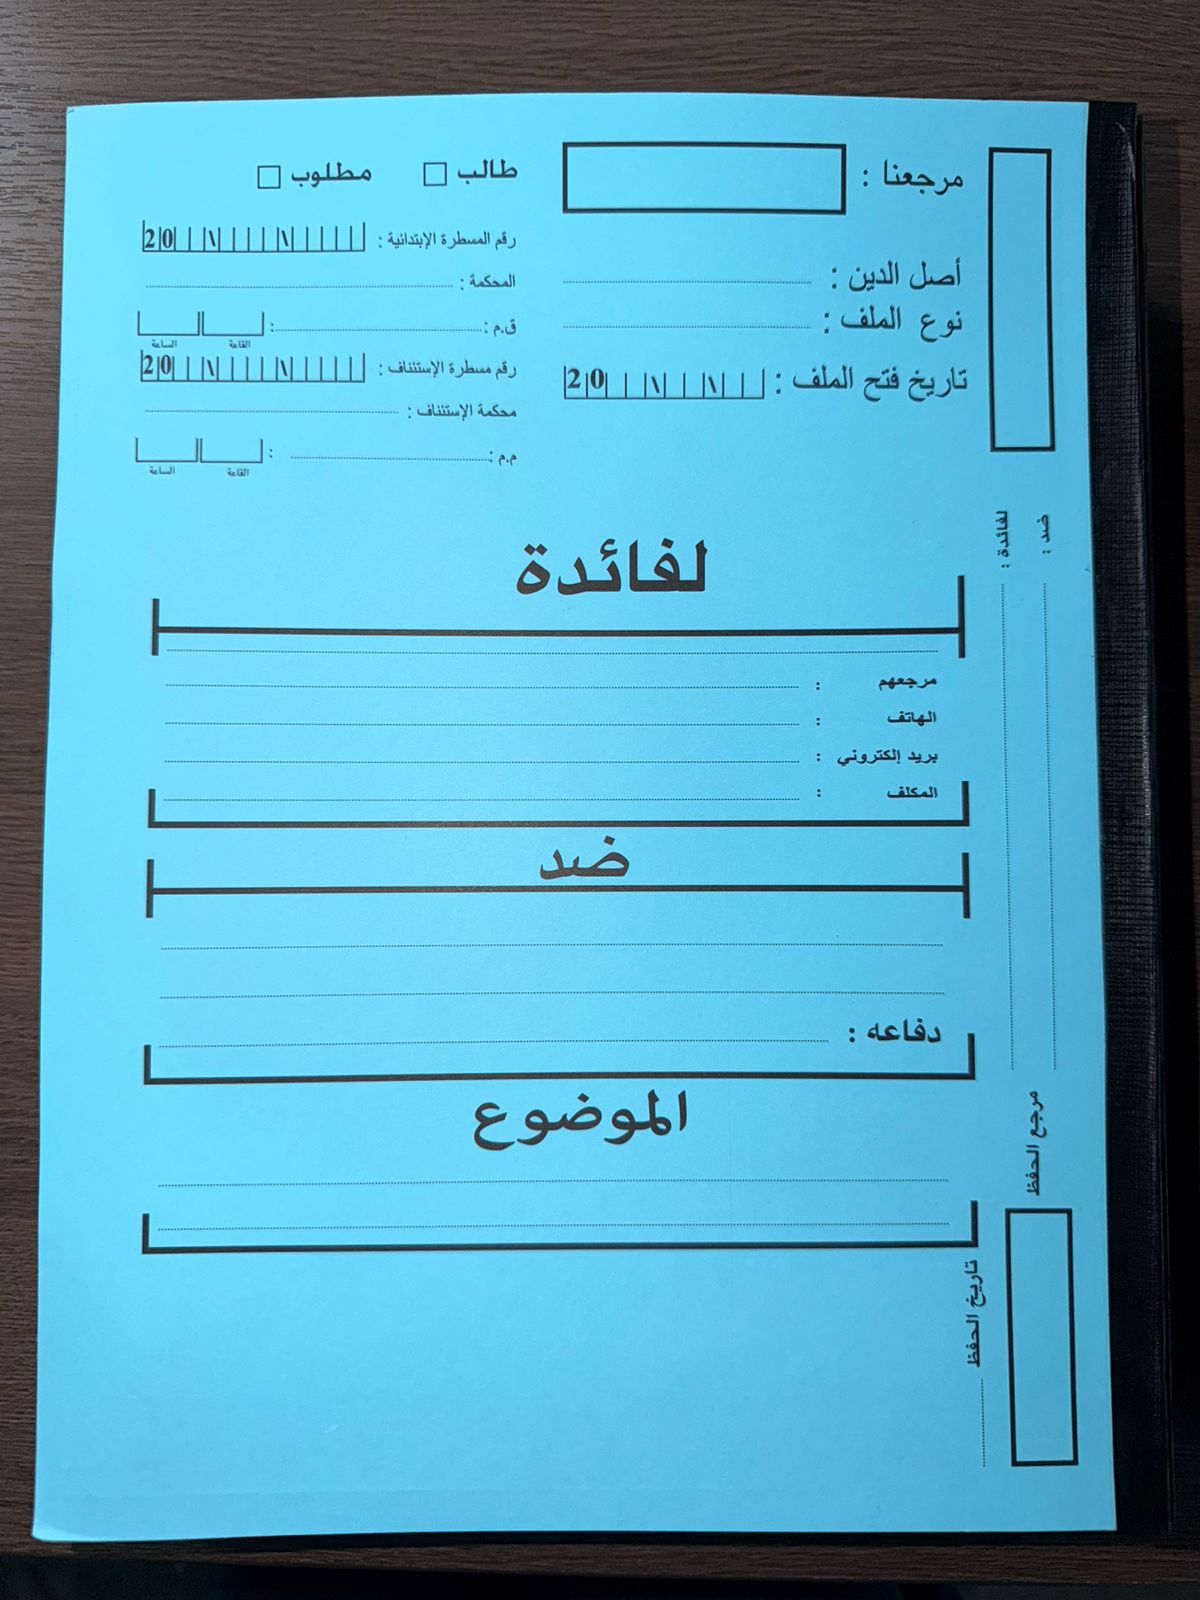 مرجعنا :
أصل الدين :
نوع الملف :
تاريخ فتح الملف : 20 \ \
طالب □ مطلوب □
رقم المسطرة الإبتدائية : 20 \ \
المحكمة :
ق.م : :
القاعة الساعة
رقم مسطرة الإستئناف : 20 \ \
محكمة الإستئناف :
م.م : :
القاعة الساعة
لفائدة
مرجعهم :
الهاتف :
بريد إلكتروني :
المكلف :
ضد
دفاعه :
الموضوع
ضد :
لفائدة :
مرجع الحفظ
تاريخ الحفظ